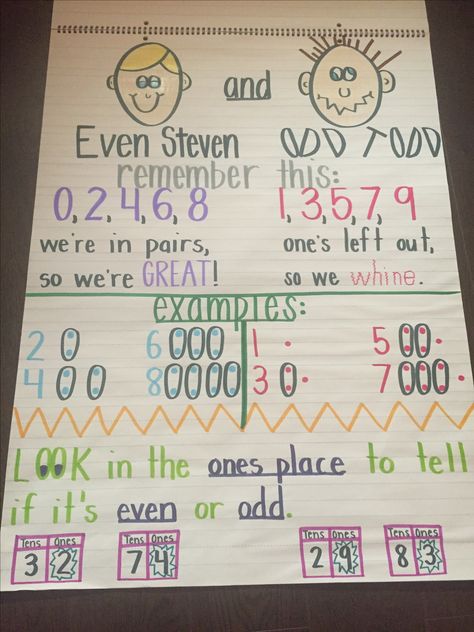 and
Even Steven ODD TODD
remember this:
0, 2, 4, 6, 8 1, 3, 5, 7, 9
we're in pairs, one's left out,
so we're GREAT! so we whine.
examples:
2 6 1 5
4 8 3 7
LOOK in the ones place to tell
if it's even or odd.
Tens Ones Tens Ones Tens Ones Tens Ones
3 2 7 4 2 9 8 3